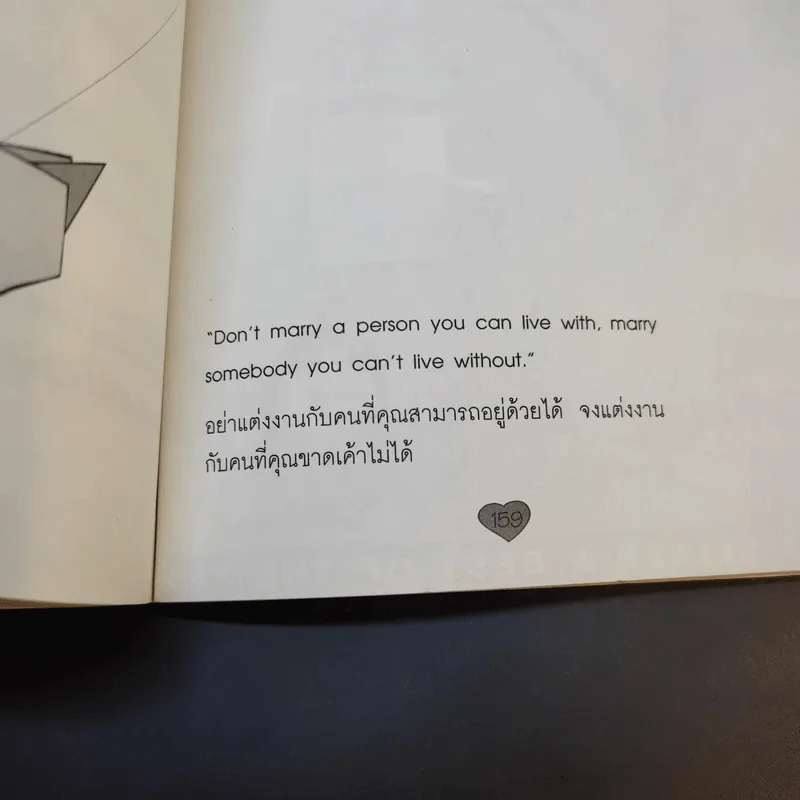 "Don't marry a person you can live with, marry
somebody you can't live without."
อย่าแต่งงานกับคนที่คุณสามารถอยู่ด้วยได้ จงแต่งงาน
กับคนที่คุณขาดเค้าไม่ได้
159